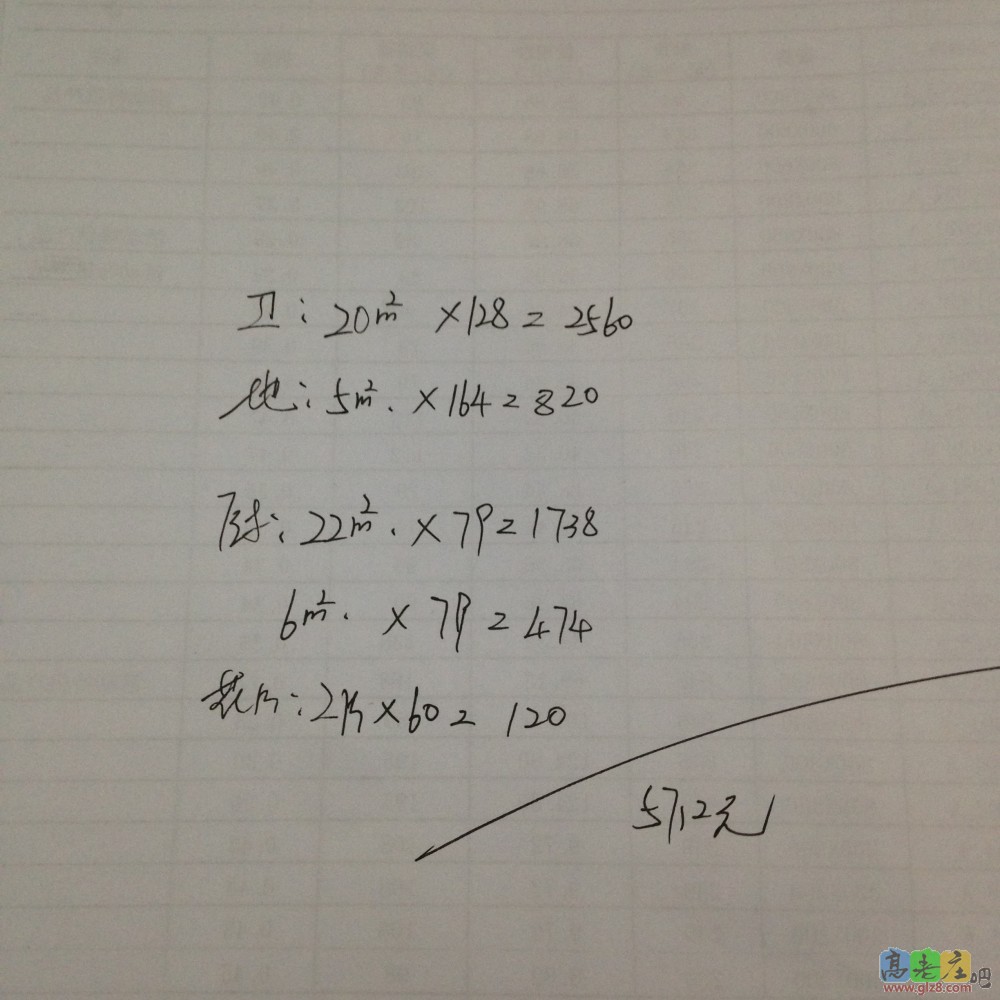 卫: 20m² ×128=2560
地: 5m². ×164=820
厨: 22m². ×79=1738
6m². ×79=474
花片: 2片×60=120
5712元
高老庄吧
www.glz8.com